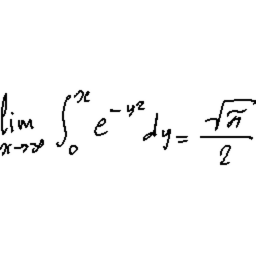 lim_{x→∞} ∫_0^x e^{-y^2} dy = \frac{\sqrt{π}}{2}